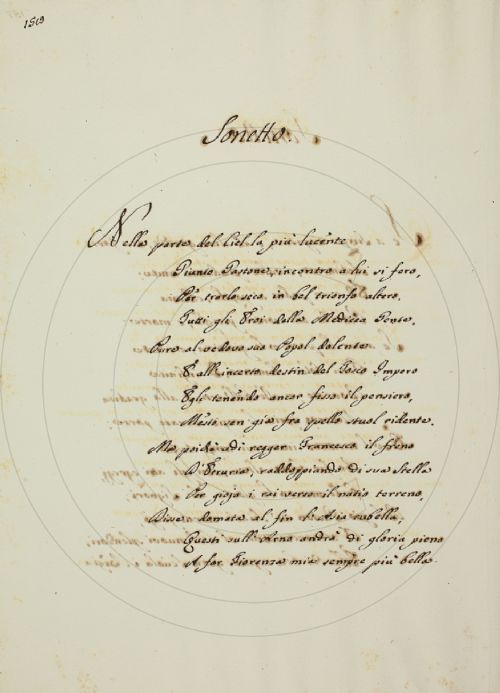 1519
Sonetto.
Nella parte del Ciel la più lucente
Giunto Gastone, incontro a lui si fero,
Per trarlo seco in bel trionfo altero,
Tutti gli Eroi della Medicea Gente.
Pure al vedovo suo Popol dolente
E all'incerto destin del Tosco Impero
Egli tenendo ancor fisso il pensiero,
Mesto sen gia fra quello stuol ridente.
Ma poichè udì regger Francesco il freno
D'Etruria, raddoppiando di sua Stella
Per gioja i rai verso il natio terreno,
Disse domata al fin l'Asia rubella,
Questi sull'Arno andrà di gloria pieno
A far Fiorenza mia sempre più bella.